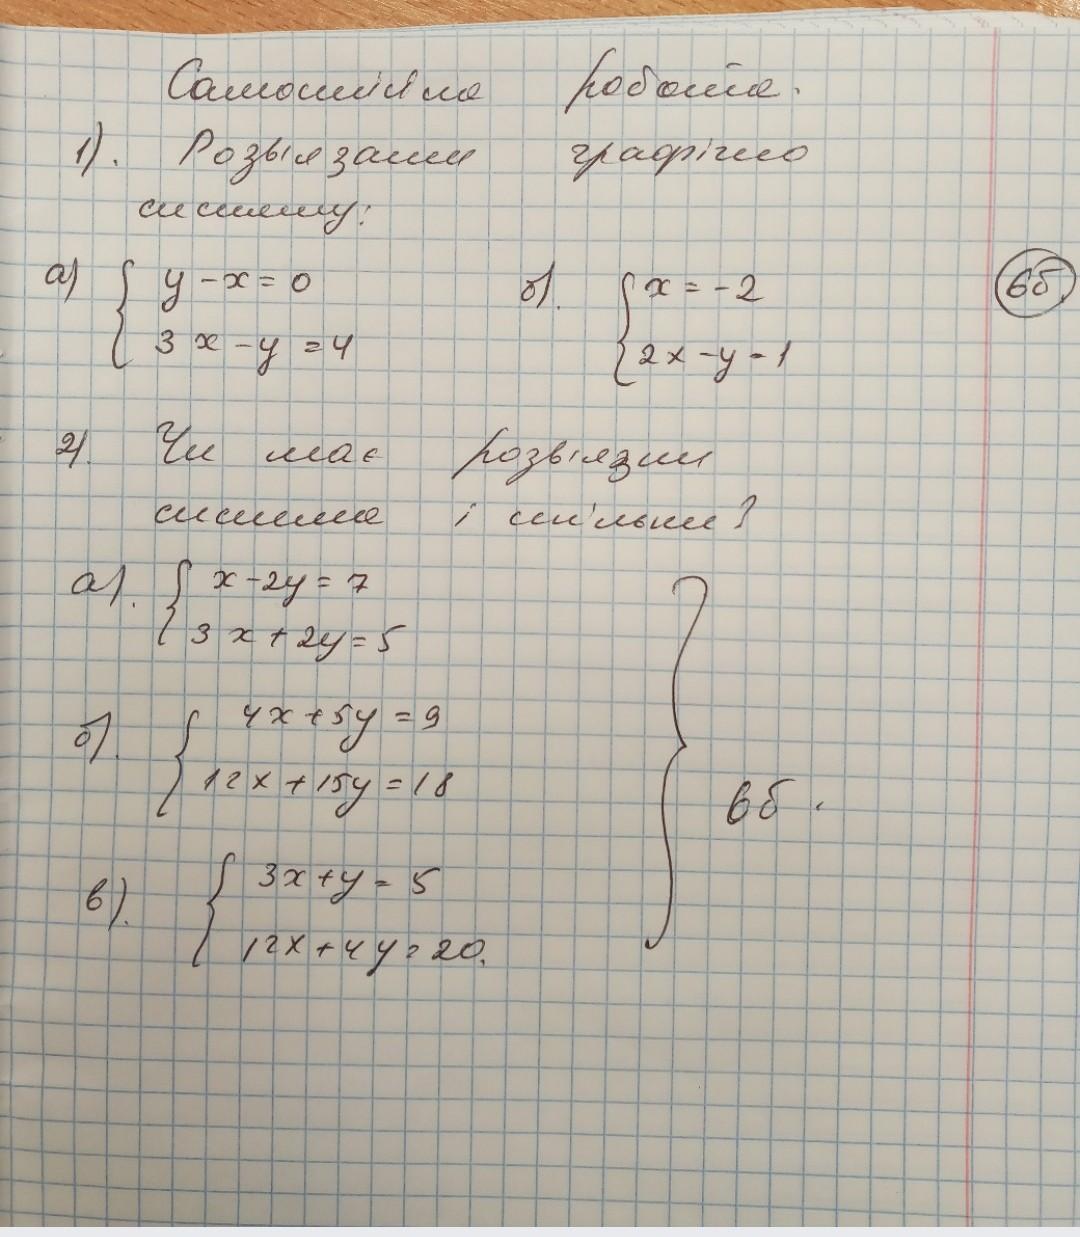 Самостійна робота.
1). Розв'язати графічно
систему:
а) { y - x = 0
3x - y = 4
б). { x = -2
2x - y = 1
6б.
2). Чи має розв'язки
система і скільки?
а). { x - 2y = 7
3x + 2y = 5
б). { 4x + 5y = 9
12x + 15y = 18
в). { 3x + y = 5
12x + 4y = 20.
} 6б.